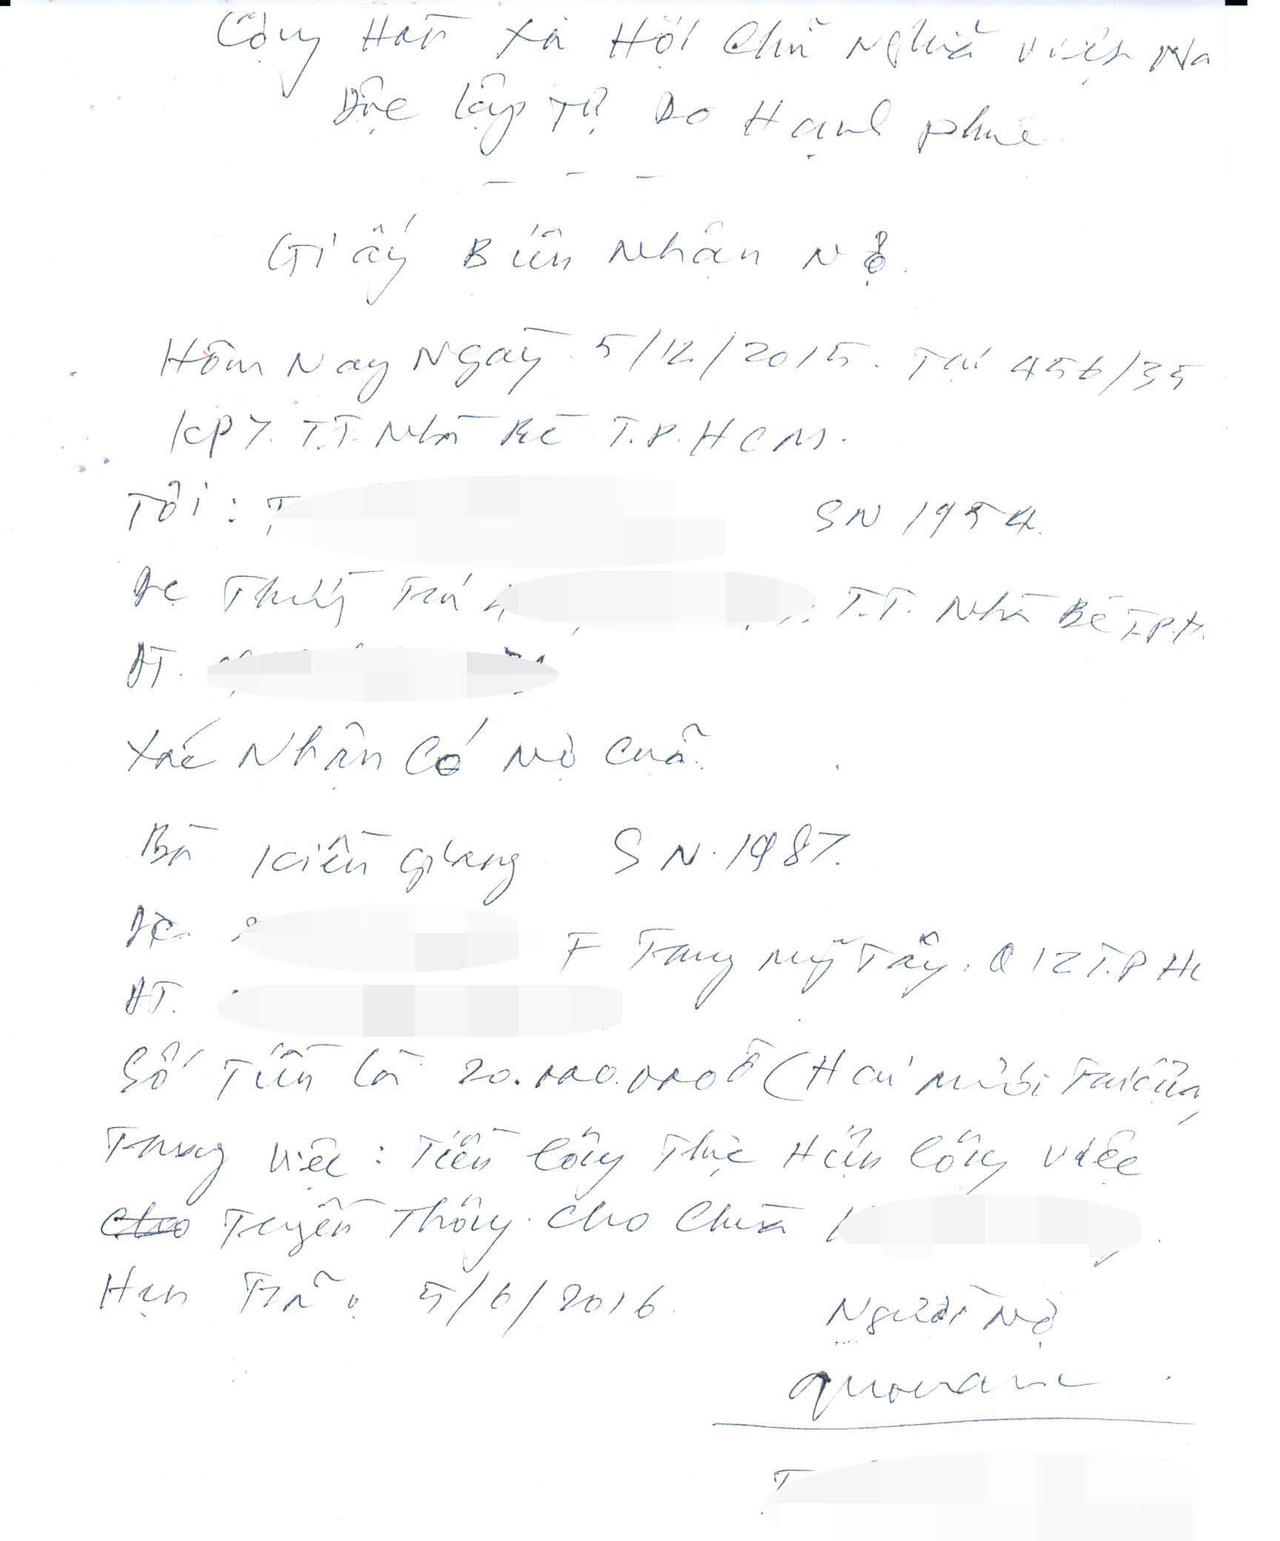 Cộng Hoà Xã Hội Chủ Nghĩa Việt Na
Độc lập Tự Do Hạnh phúc
- - -
Giấy Biên Nhận Nợ.
Hôm Nay Ngày 5/12/2015. Tại 456/35
KP7. T.T. Nhà Bè T.P. HCM.
Tôi : T SN 1954.
Đc Thường Trú T.T. Nhà Bè T.P.H.
ĐT.
Xác Nhận Có Nợ Của.
Bà Kiều Giang SN. 1987.
Đc. F Trung Mỹ Tây. Q 12 T.P Hc
ĐT.
Số Tiền là 20.000.000đ (Hai mươi Triệu,
Trong việc : Tiền Công Thực Hiện Công việc
Truyền Thông. cho Chùa
Hạn Trả : 5/6/2016.
Người Nợ
T